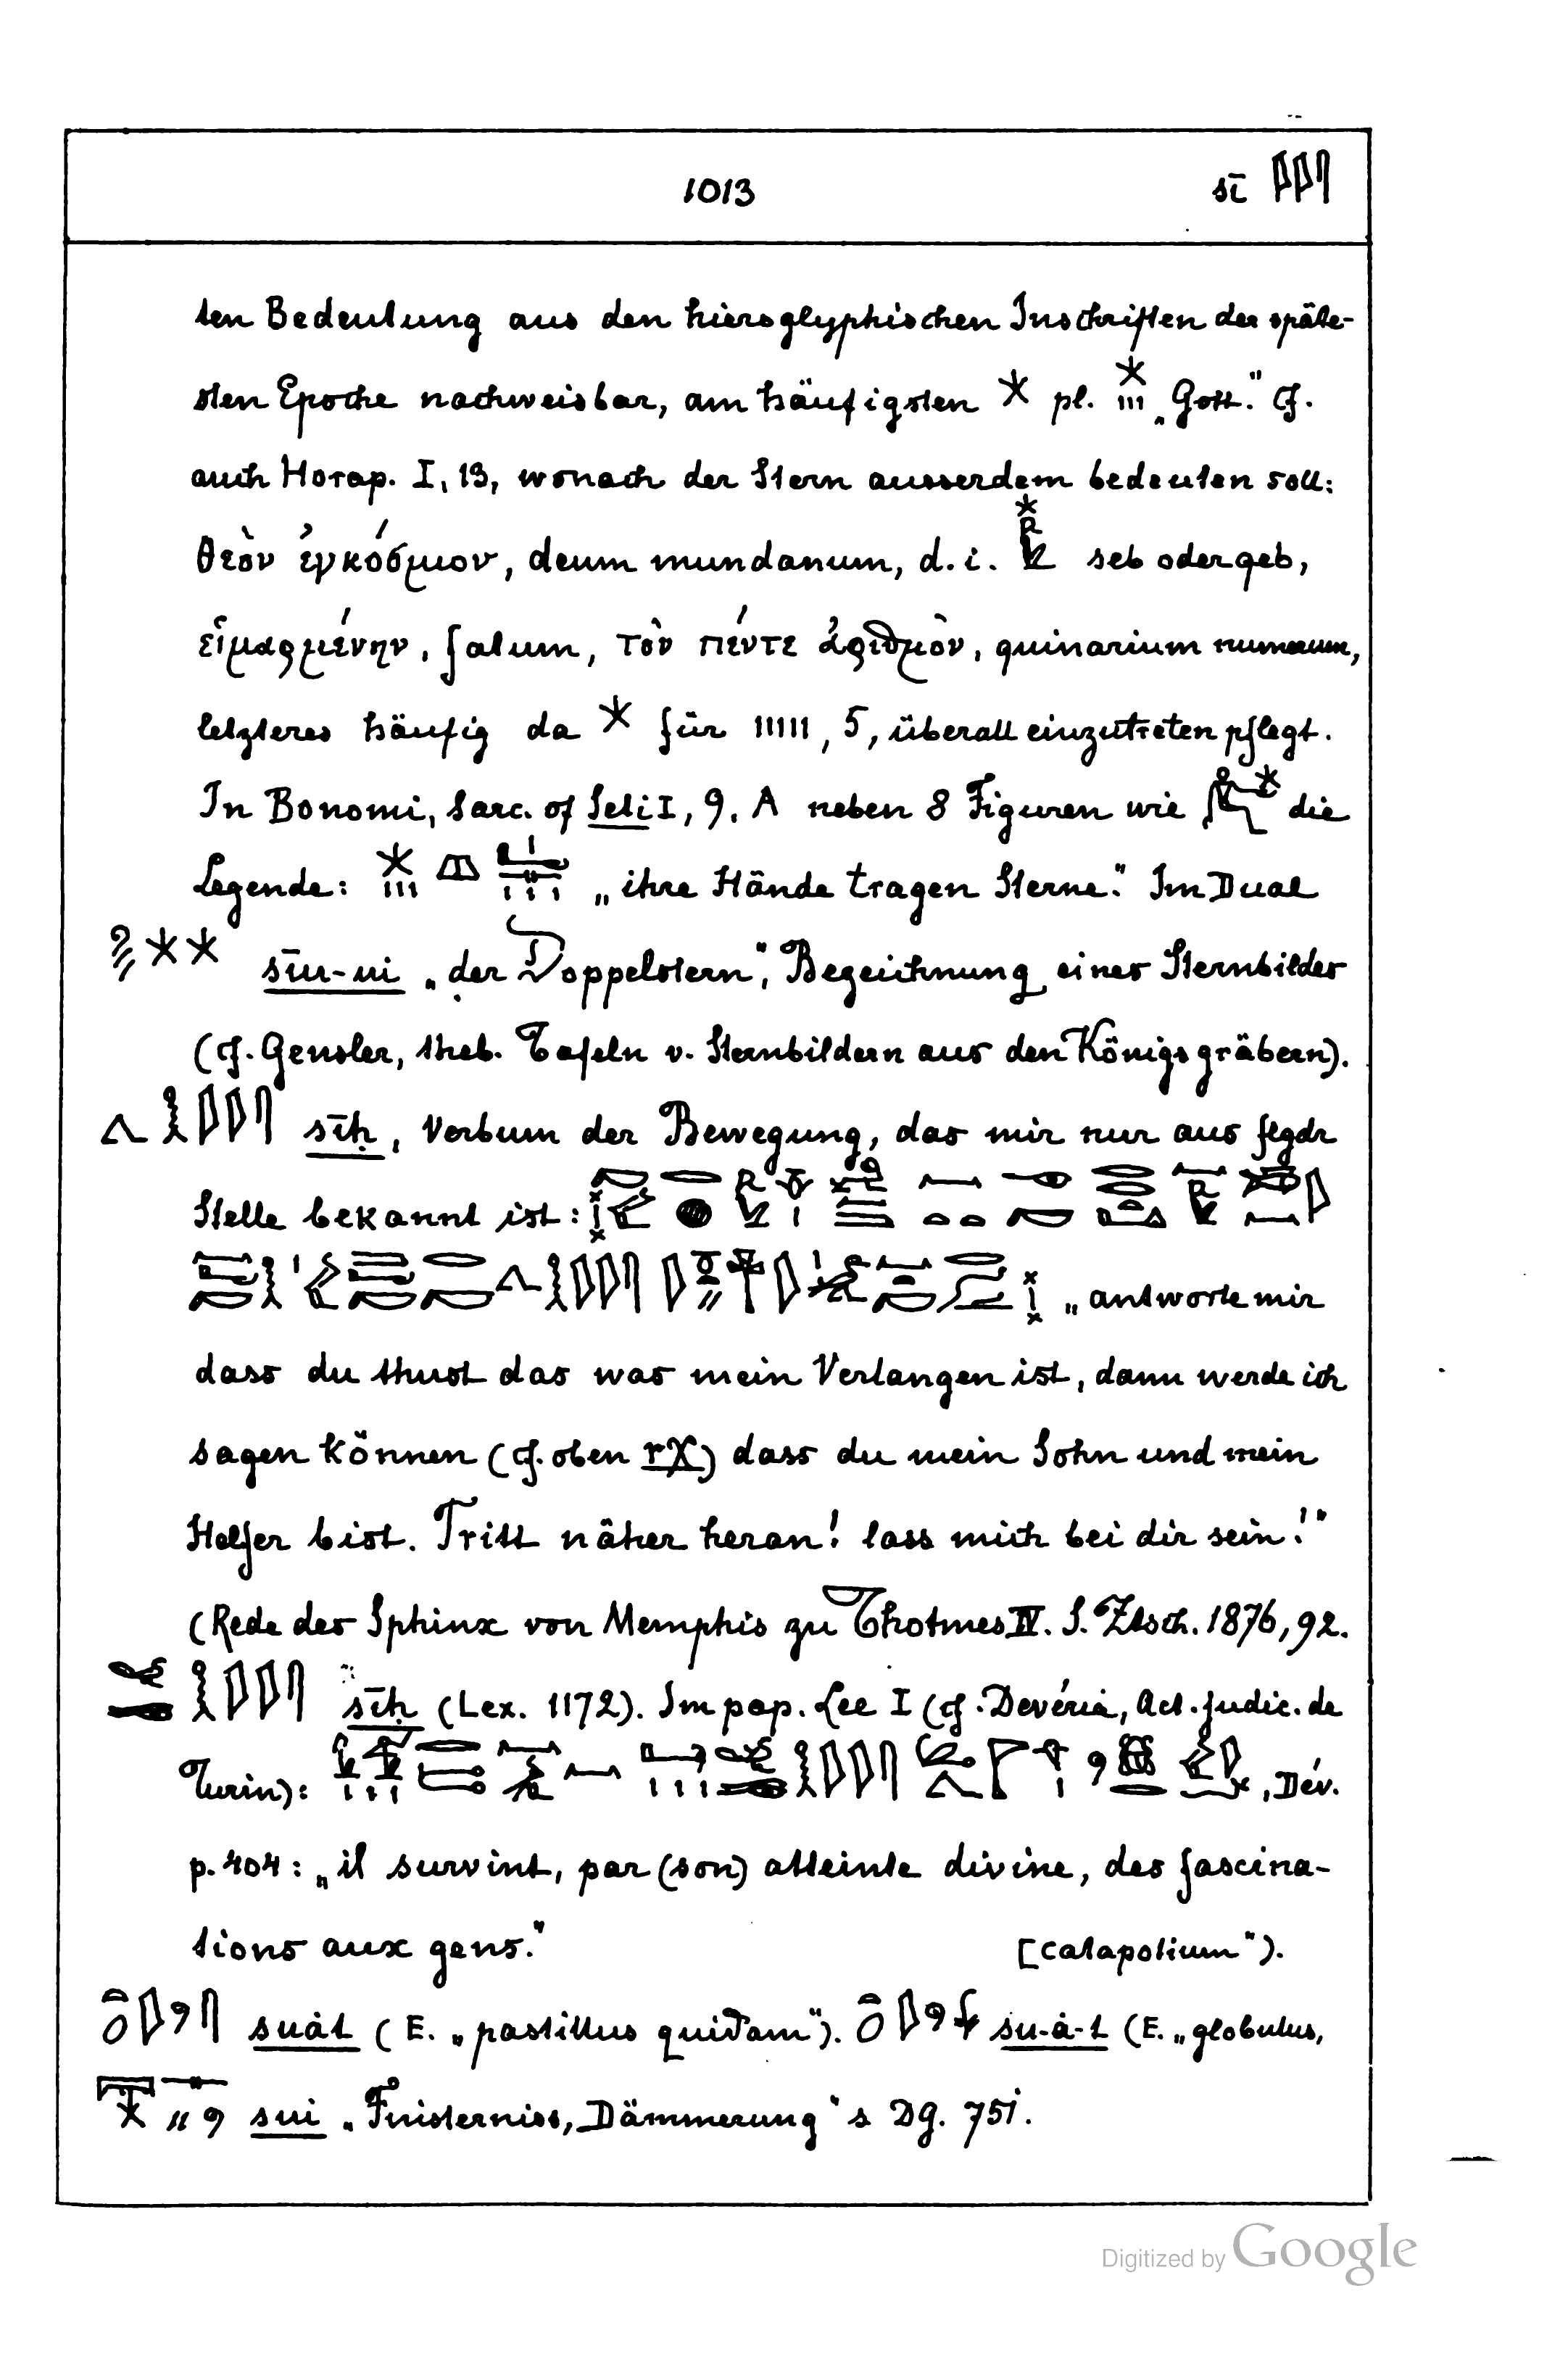 1013 sī 𓇌𓋴
ten Bedeutung aus den hieroglyphischen Inschriften der späte-
sten Epoche nachweisbar, am häufigsten 𓇼 pl. 𓇼 III „Gott." Cf.
auch Horap. I, 13, wonach der Stern ausserdem bedeuten soll:
θεὸν ἐγκόσμιον, deum mundanum, d. i. seb oder geb,
εἱμαρμένην, fatum, τὸν πέντε ἀριθμὸν, quinarium numerum,
letzteres häufig da 𓇼 für IIIII, 5, überall einzutreten pflegt.
In Bonomi, Sarc. of Seti I, 9. A neben 8 Figuren wie die
Legende: „ihre Hände tragen Sterne." Im Dual
sīu-ui „der Doppelstern", Bezeichnung eines Sternbildes
(cf. Gensler, theb. Tafeln v. Sternbildern aus den Königsgräbern).
sīḥ, Verbum der Bewegung, das mir nur aus flgdr
Stelle bekannt ist:
„antworte mir
dass du thust das was mein Verlangen ist, dann werde ich
sagen können (cf. oben rχ) dass du mein Sohn und mein
Helfer bist. Tritt näher heran! lass mich bei dir sein!"
(Rede des Sphinx von Memphis zu Thotmes IV. S. Ztsch. 1876, 92.
sīḥ (Lex. 1172). Im pap. Lee I (cf. Devéria, Act. judic. de
Turin): , Dév.
p. 404: „il survint, par (son) atteinte divine, des fascina-
tions aux gens." [catapotium").
suȧt (E. „pastillus quidam"). su-ȧ-t (E. „globulus,
sui „Finsterniss, Dämmerung" s DG. 751.
Digitized by Google